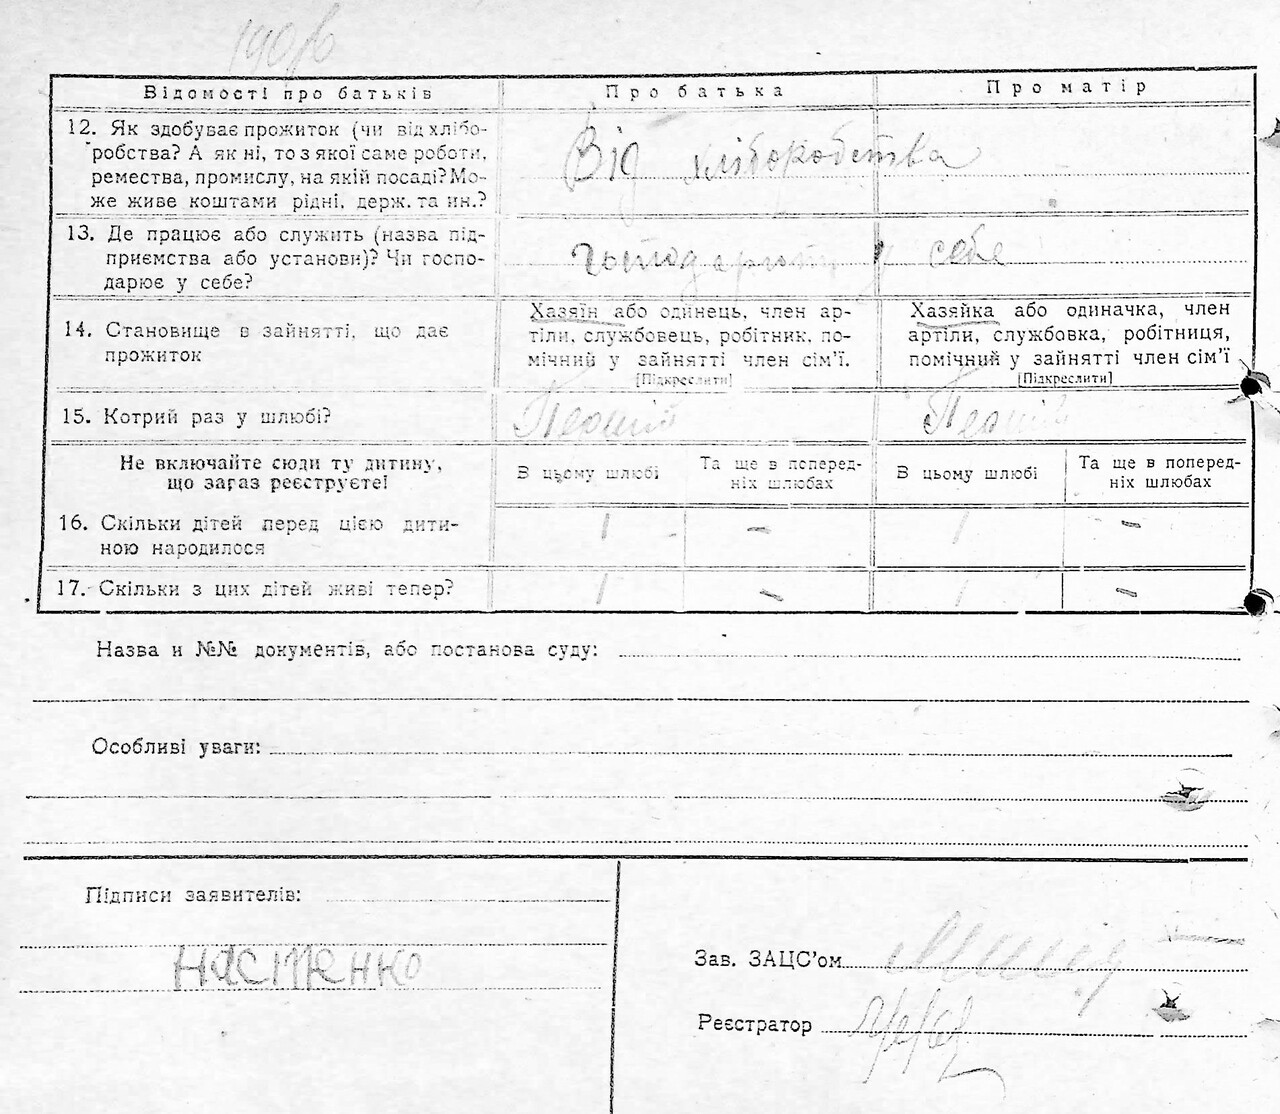 Відомості про батьків Про батька Про матір
12. Як здобуває прожиток (чи від хлібо-
робства? А як ні, то з якої саме роботи,
ремества, промислу, на якій посаді? Мо-
же живе коштами рідні, держ. та ин.?
Від хліборобства
13. Де працює або служить (назва під-
приємства або установи)? Чи госпо-
дарює у себе?
у себе
14. Становище в зайнятті, що дає
прожиток
Хазяїн або одинець, член ар-
тіли, службовець, робітник, по-
мічний у зайнятті член сім'ї.
[Підкреслити]
Хазяйка або одиначка, член
артіли, службовка, робітниця,
помічний у зайнятті член сім'ї
[Підкреслити]
15. Котрий раз у шлюбі? Перший Перший
Не включайте сюди ту дитину,
що зараз реєструєте!
В цьому шлюбі
Та ще в поперед-
ніх шлюбах
В цьому шлюбі
Та ще в поперед-
ніх шлюбах
16. Скільки дітей перед цією дити-
ною народилося
1 – 1 –
17. Скільки з цих дітей живі тепер? 1 – 1 –
Назва и №№ документів, або постанова суду:
Особливі уваги:
Підписи заявителів:
Насіпенко
Зав. ЗАЦС'ом
Реєстратор